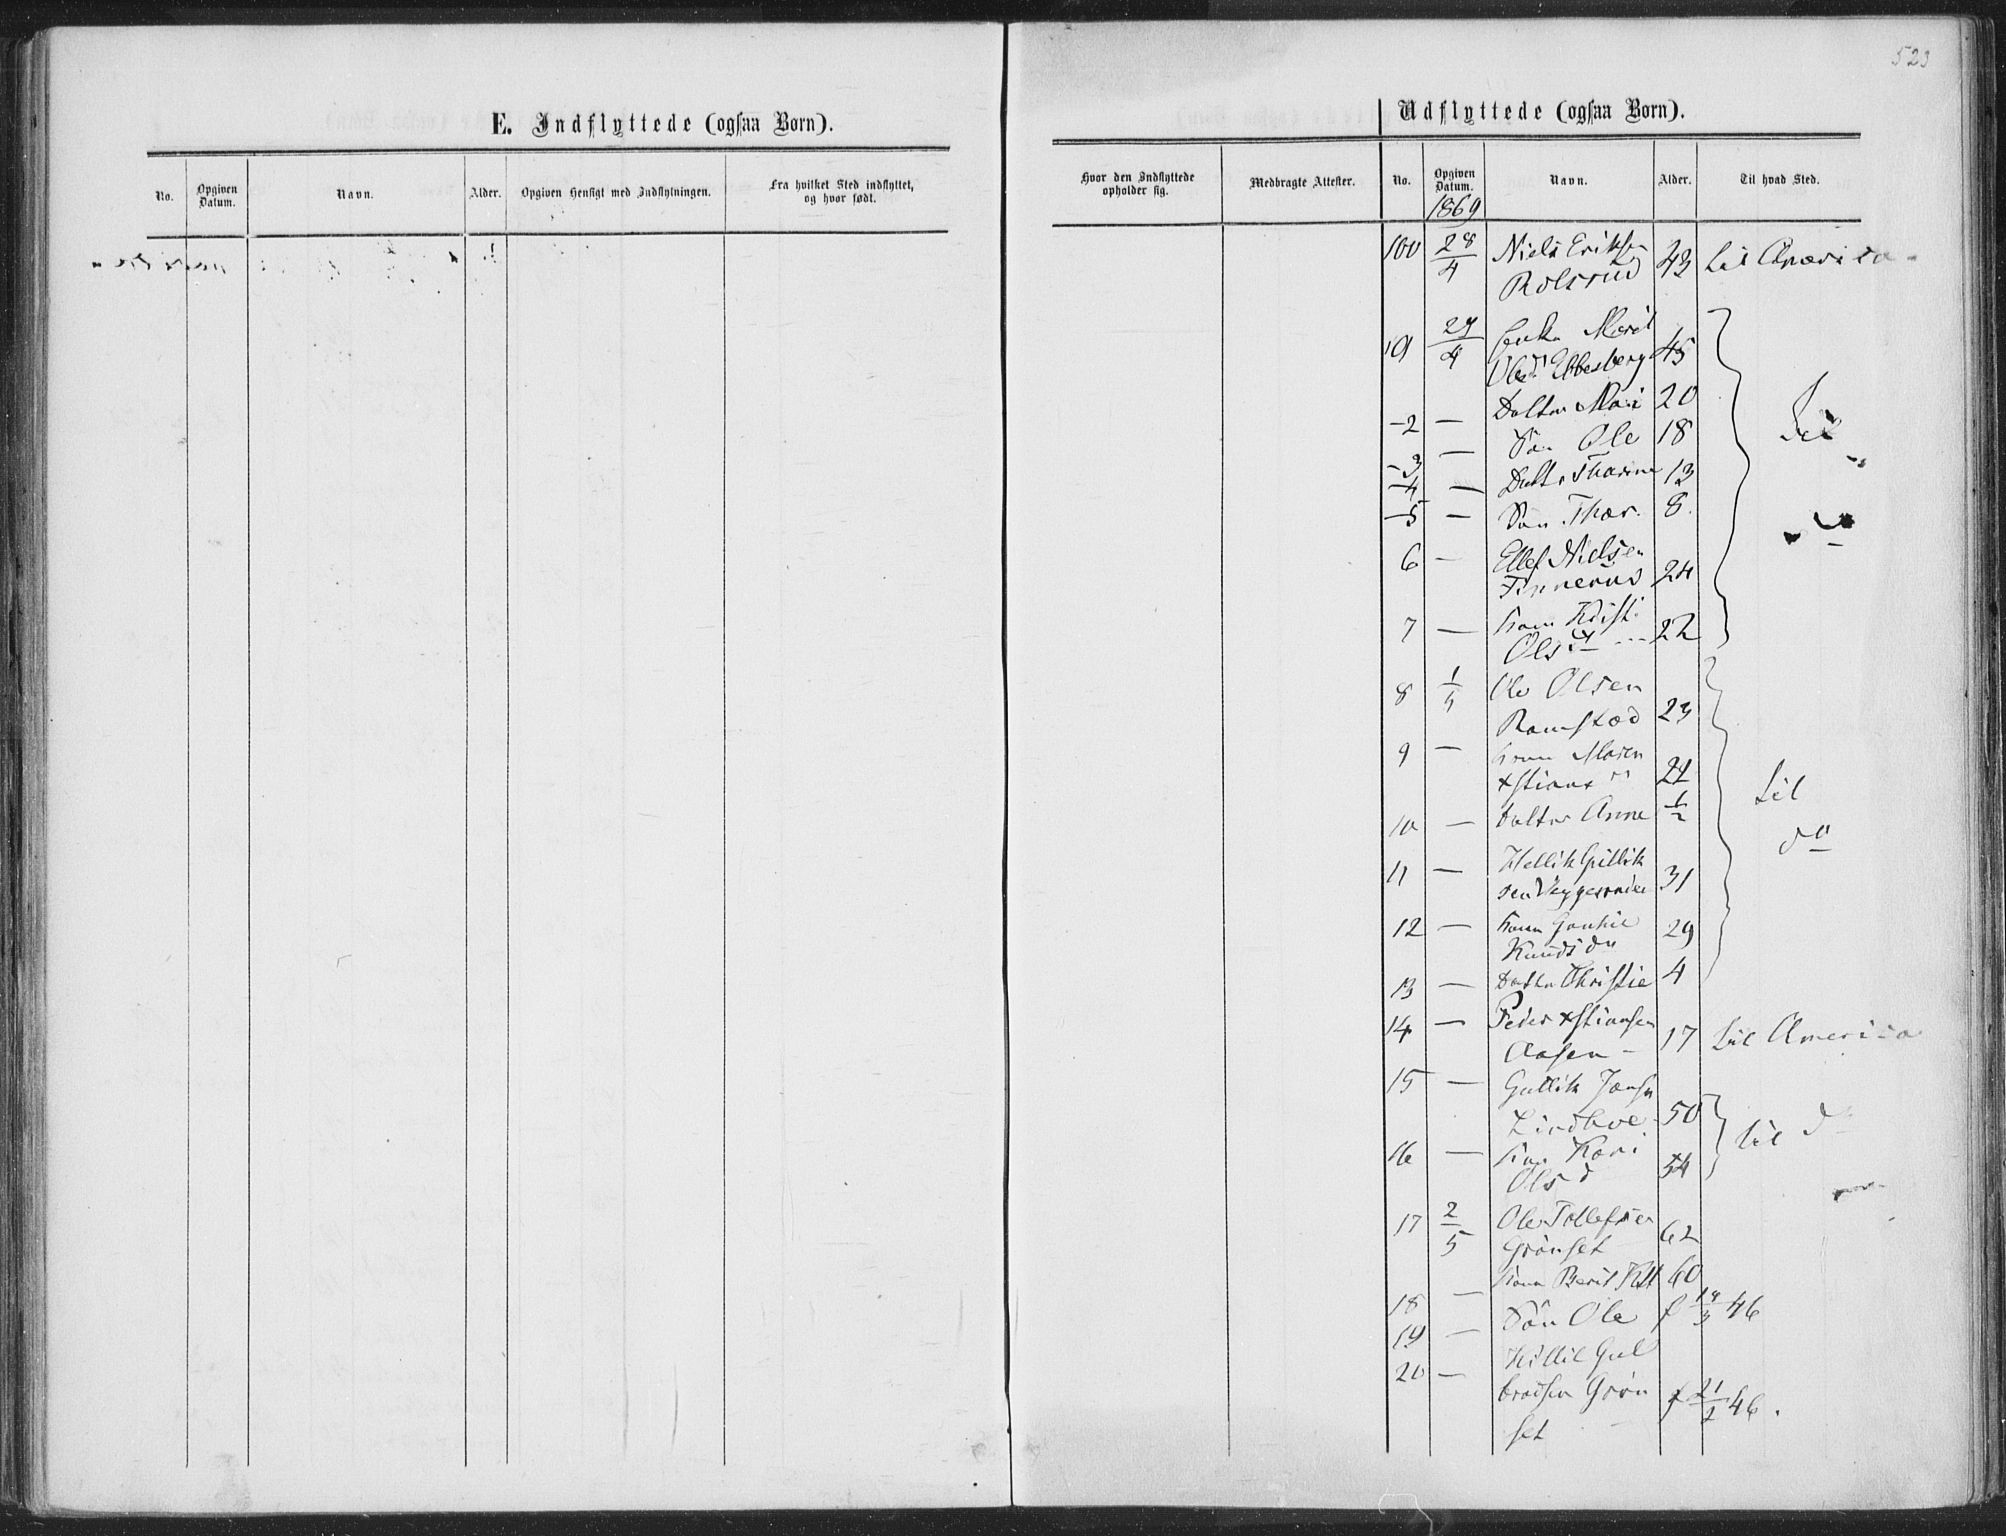 523
E. Indflyttede (ogsaa Børn).
No.
Opgiven Datum.
Navn.
Alder.
Opgiven Hensigt med Indflytningen.
Fra hvilket Sted indflyttet, og hvor født.
Udflyttede (ogsaa Børn).
Hvor den Indflyttede opholder sig.
Medbragte Attester.
No.
Opgiven Datum.
Navn.
Alder.
Til hvad Sted.
1869
100 28/4 Niels Eriksen
Rolsrud 43 til America
101 29/4 Enke Marit
Olsd. Ebbesberg 45
-2 — Datter Mari 20 til
-3 — Søn Ole 18
-4 — Datter Thorine 13
-5 — Søn Thor. 8.
6 — Ellef Nielsen
Finnerud 24
7 — Kone Kristi
Olsd 22
8 1/5 Ole Olsen
Ramstad 23
9 — Kone Maren
xstians 24 til
10 — Datter Anne 1/2 do
11 — Hellik Gullik
sen 31
12 — Kone Gunhil
Knudsdn 29
13 — Datter Christie 4
14 — Peder xstiansen
Aasen – 17 til America
15 — Gullik Jonsen
50
16 — Kone Kari til d
Olsd 54
17 2/5 Ole Tollefsen
Grønset 62
18 — Kone Berit 60
19 — Søn Ole f 18/3 46
20 — Gul
brandsen Grøn
set f 21/2 46.